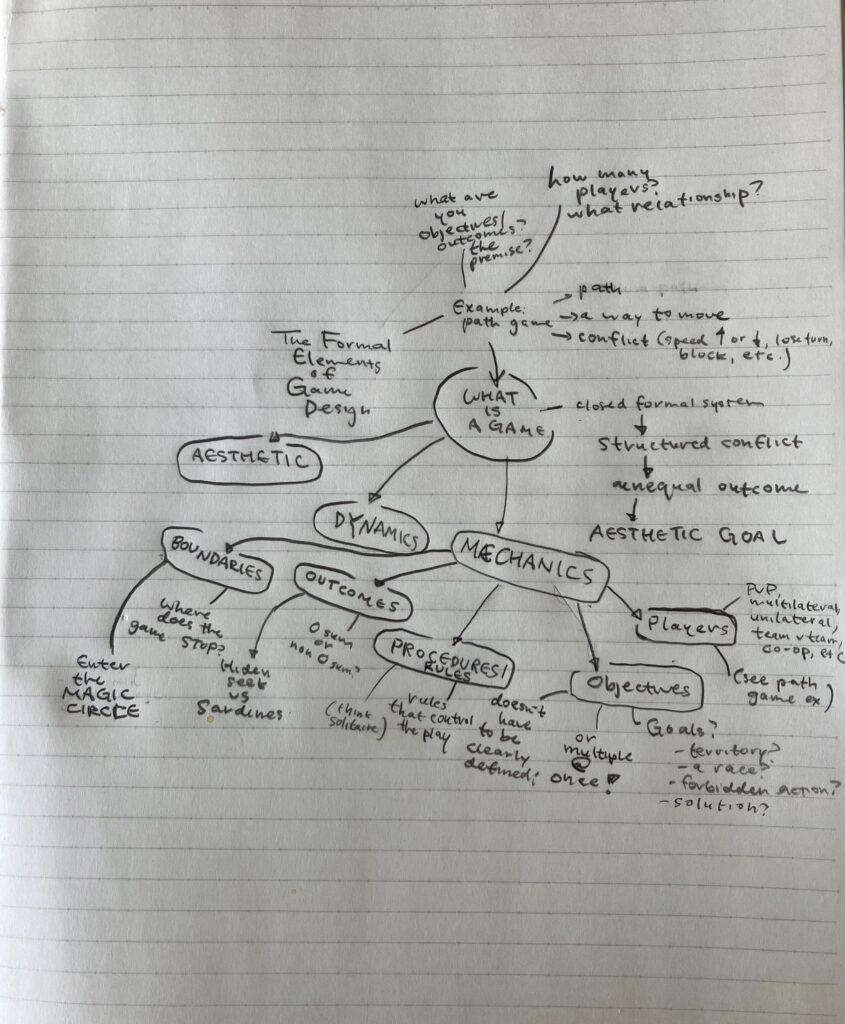 how many
players?
what relationship?
what are
you
objectives/
outcomes?
the
premise?
Example:
path game
path
a way to move
conflict (speed ↑ or ↓, lose turn,
block, etc.)
The Formal
Elements
of
Game
Design
WHAT
IS
A GAME
closed formal system
structured conflict
unequal outcome
AESTHETIC GOAL
AESTHETIC
DYNAMICS
MECHANICS
BOUNDARIES
where
does the
game STOP?
Enter
the
MAGIC
CIRCLE
OUTCOMES
0 sum
or
non 0 sum?
Hiden
seek
vs
Sardines
PROCEDURES/
RULES
(think
solitaire)
rules
that control
the play
Objectives
doesn't
have
to be
clearly
defined;
or
multiple
@
once!
Goals?
- territory?
- a race?
- forbidden action?
- solution?
Players
PvP,
multilateral,
unilateral,
team v team,
co-op, etc
(see path
game ex)